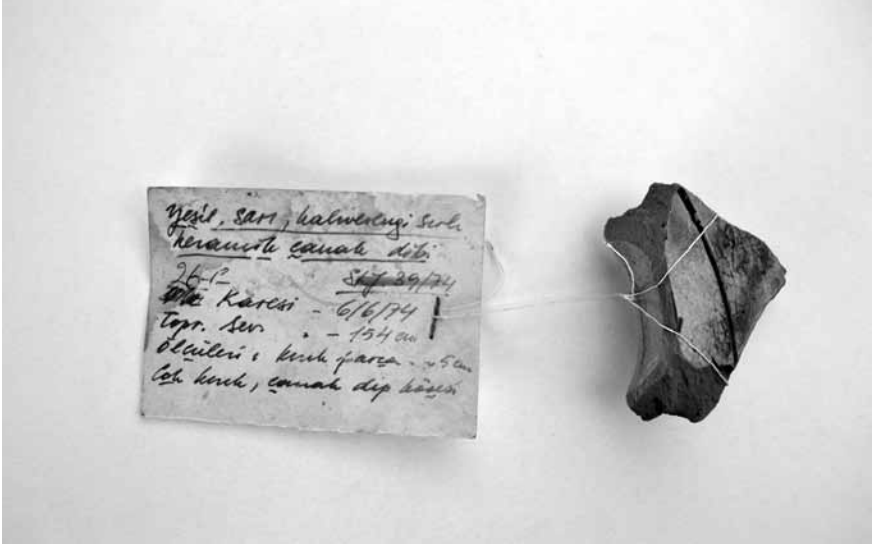 Yeşil, sarı, kahverengi sırlı
keramik çanak dibi
Karesi - 6/6/74
Topr. Sev. - - 154 cm
Ölçüleri : kırık parça - 5 cm
Çok kırık, çanak dip köşesi